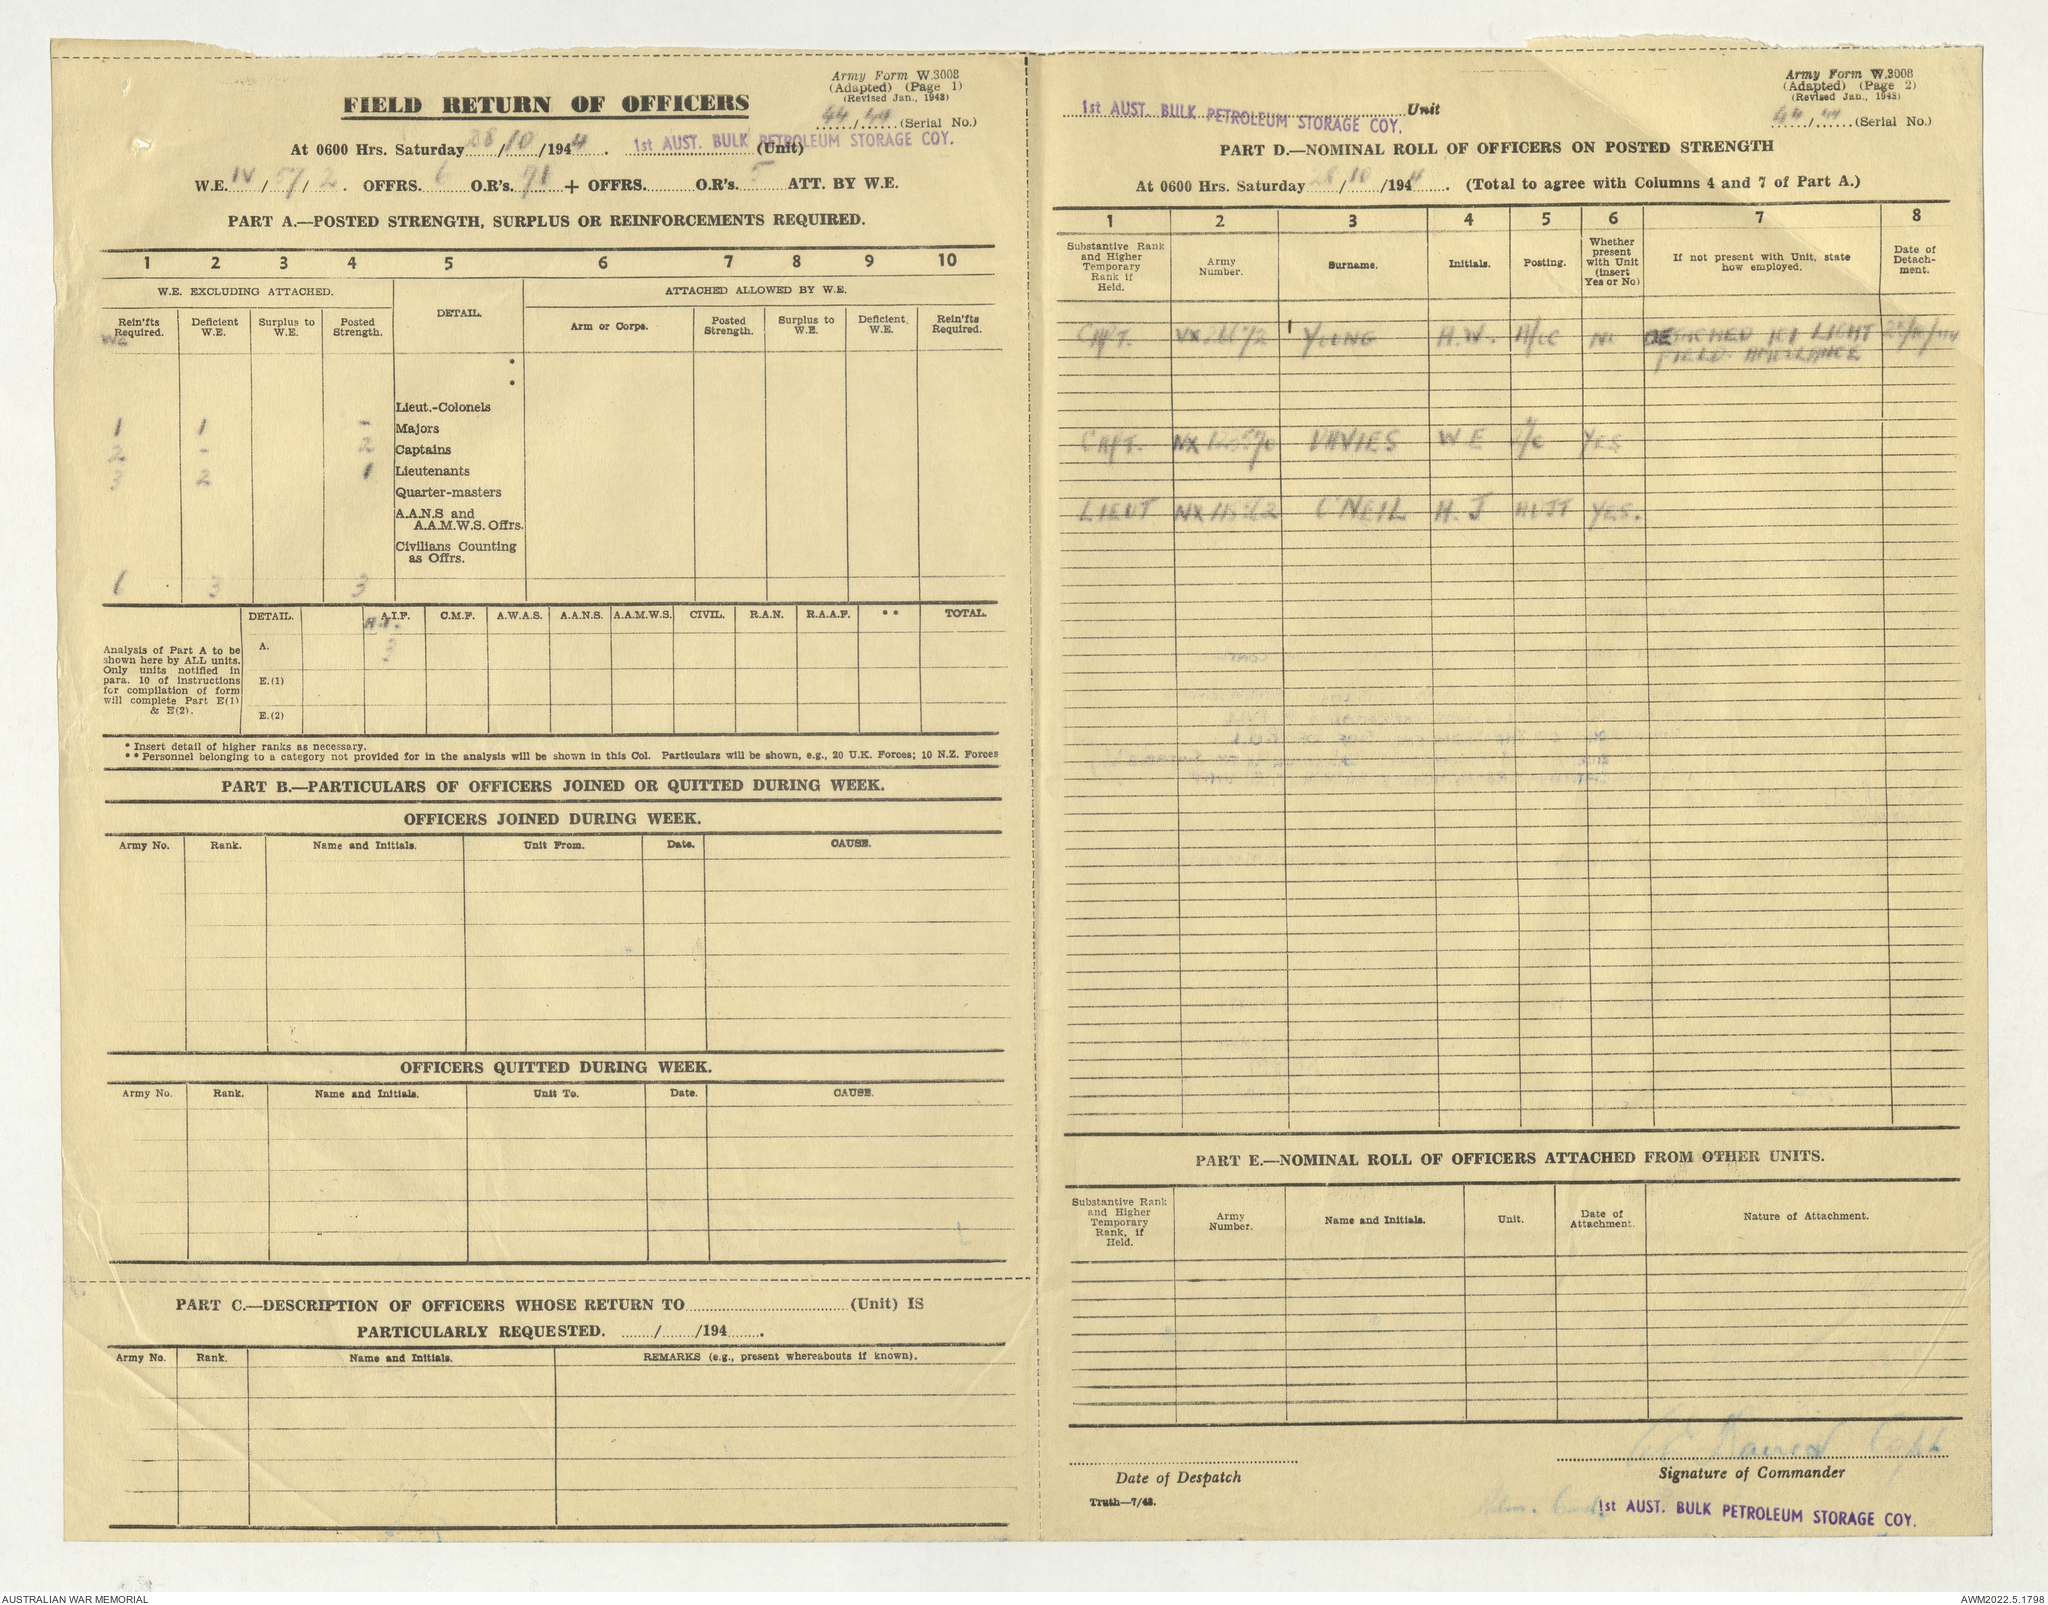 Army Form W.3008
(Adapted) (Page 1)
(Revised Jan., 1943)
FIELD RETURN OF OFFICERS
44/44 (Serial No.)
At 0600 Hrs. Saturday 28/10/1944. 1st AUST. BULK PETROLEUM STORAGE COY. (Unit)
W.E. IV/57/2. OFFRS. 6 O.R's. 71 + OFFRS. O.R's. 5 ATT. BY W.E.
PART A.—POSTED STRENGTH, SURPLUS OR REINFORCEMENTS REQUIRED.
1 2 3 4 5 6 7 8 9 10
W.E. EXCLUDING ATTACHED. DETAIL. ATTACHED ALLOWED BY W.E.
Rein'fts Required. Deficient W.E. Surplus to W.E. Posted Strength. Arm or Corps. Posted Strength. Surplus to W.E. Deficient W.E. Rein'fts Required.
WE
*
*
Lieut.-Colonels
1 1 - Majors
2 - 2 Captains
3 2 1 Lieutenants
Quarter-masters
A.A.N.S and
A.A.M.W.S. Offrs.
Civilians Counting
as Offrs.
6 3 3
DETAIL. A.I.F. C.M.F. A.W.A.S. A.A.N.S. A.A.M.W.S. CIVIL. R.A.N. R.A.A.F. ** TOTAL.
Analysis of Part A to be
shown here by ALL units.
Only units notified in
para. 10 of instructions
for compilation of form
will complete Part E(1)
& E(2).
A. 3
E.(1)
E.(2)
* Insert detail of higher ranks as necessary.
** Personnel belonging to a category not provided for in the analysis will be shown in this Col. Particulars will be shown, e.g., 20 U.K. Forces; 10 N.Z. Forces
PART B.—PARTICULARS OF OFFICERS JOINED OR QUITTED DURING WEEK.
OFFICERS JOINED DURING WEEK.
Army No. Rank. Name and Initials. Unit From. Date. CAUSE.
OFFICERS QUITTED DURING WEEK.
Army No. Rank. Name and Initials. Unit To. Date. CAUSE.
PART C.—DESCRIPTION OF OFFICERS WHOSE RETURN TO (Unit) IS
PARTICULARLY REQUESTED. / /194 .
Army No. Rank. Name and Initials. REMARKS (e.g., present whereabouts if known).
Army Form W.3008
(Adapted) (Page 2)
(Revised Jan., 1943)
1st AUST. BULK PETROLEUM STORAGE COY. Unit
44/44 (Serial No.)
PART D.—NOMINAL ROLL OF OFFICERS ON POSTED STRENGTH
At 0600 Hrs. Saturday 28/10/1944. (Total to agree with Columns 4 and 7 of Part A.)
1 2 3 4 5 6 7 8
Substantive Rank and Higher Temporary Rank if Held. Army Number. Surname. Initials. Posting. Whether present with Unit (insert Yes or No) If not present with Unit, state how employed. Date of Detachment.
CAPT. YOUNG A.W. A/OC No DETACHED LIGHT
FIELD AMBULANCE
CAPT. DAVIES W.E YES
LIEUT O'NEIL H.J ADJT YES.
PART E.—NOMINAL ROLL OF OFFICERS ATTACHED FROM OTHER UNITS.
Substantive Rank and Higher Temporary Rank, if Held. Army Number. Name and Initials. Unit. Date of Attachment. Nature of Attachment.
Capt
Date of Despatch
Signature of Commander
Truth—7/43.
1st AUST. BULK PETROLEUM STORAGE COY.
AUSTRALIAN WAR MEMORIAL
AWM2022.5.1798